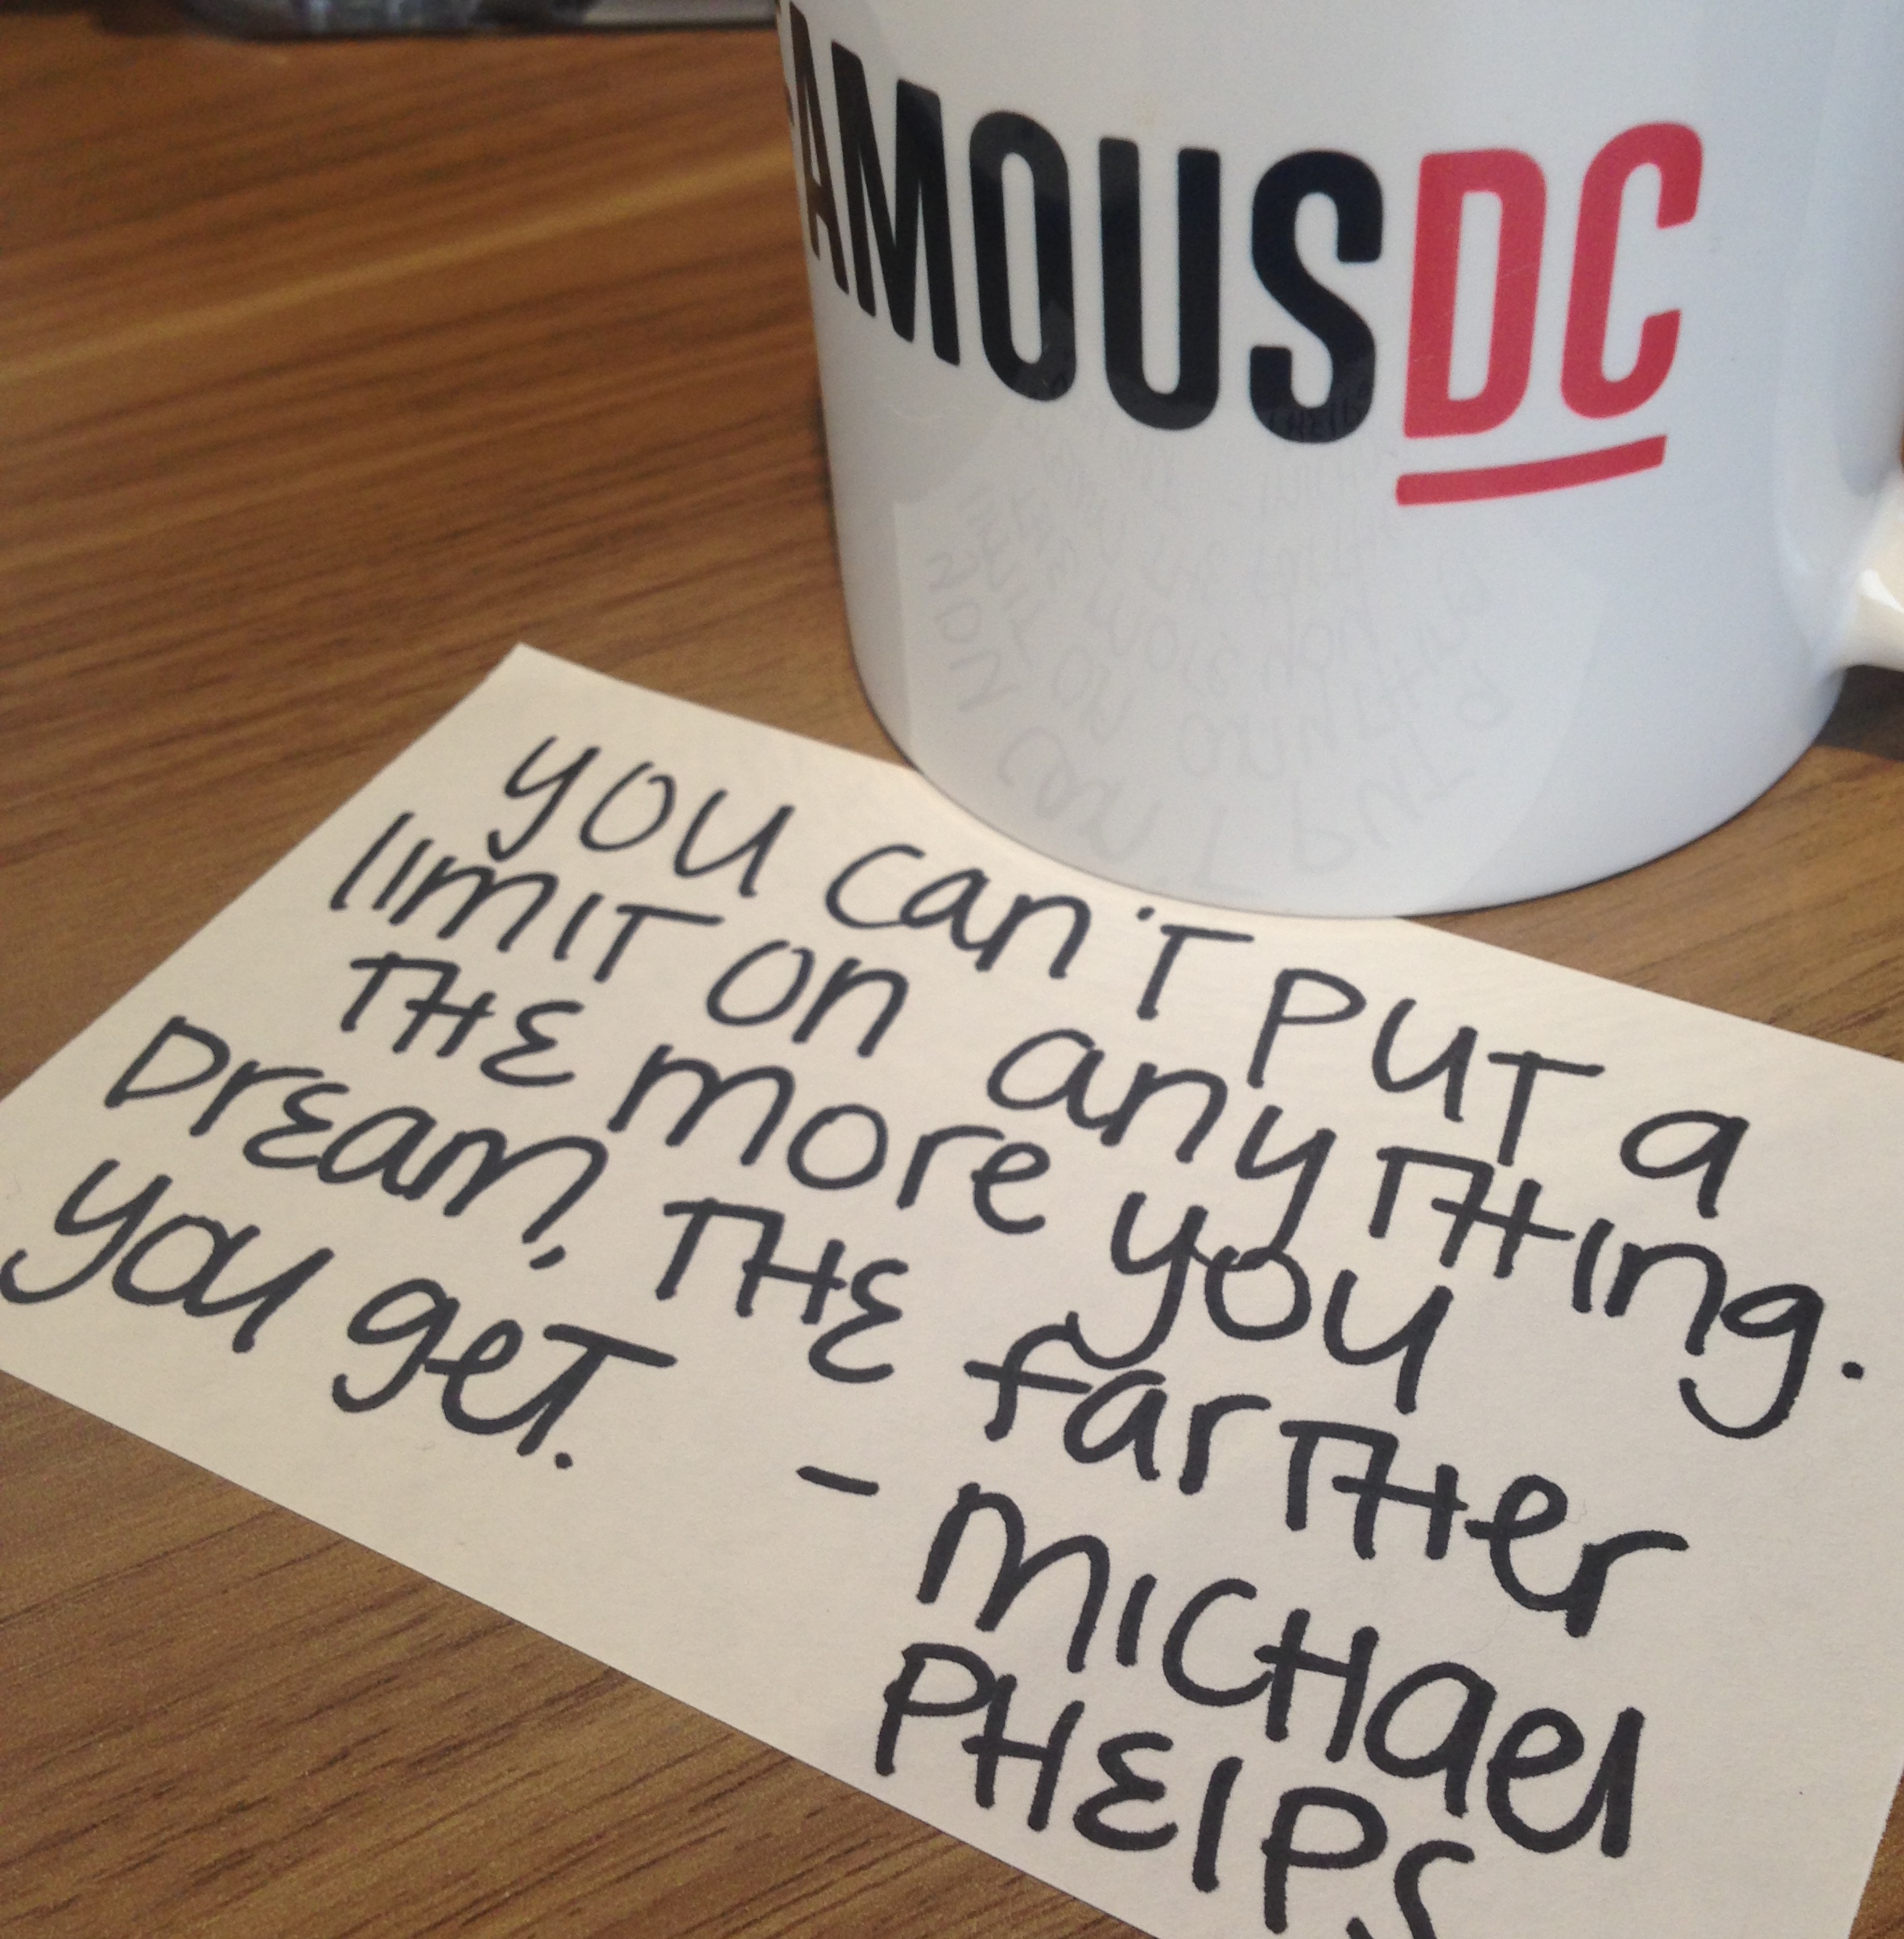 FAMOUSDC
you can't put a
limit on anything.
THE more you
Dream, THE farther
you get.
- Michael
PHELPS